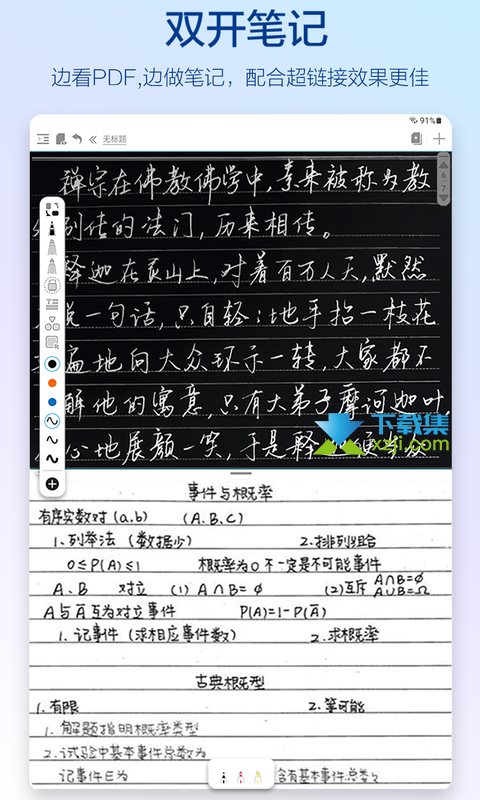 双开笔记
边看PDF,边做笔记，配合超链接效果更佳
91%
无标题
禅宗在佛教佛学中,素来被称为教
别传的法门,历来相传。
释迦在灵山上,对着百万人天,默然
说一句话,只自轻轻地手拈一枝花
遍地向大众环示一转,大家都不
解他的寓意,只有大弟子摩诃迦叶,
心地展颜一笑,于是释
6
7
下载集
xzji.com
事件与概率
有序实数对(a.b) (A.B.C)
1.列举法(数据少) 2.排列组合
0≤P(A)≤1 概率为0不一定是不可能事件
A、B 对立 (1) A∩B=∅ (2)互斥 A∩B=∅
A∪B=Ω
A与Ā互为对立事件 P(A)=1-P(Ā)
1.记事件(求相应事件数) 2.求概率
古典概型
1.有限 2.等可能
1.解题指明概率类型
2.试验中基本事件总数为
记事件E为 含有基本事件总数